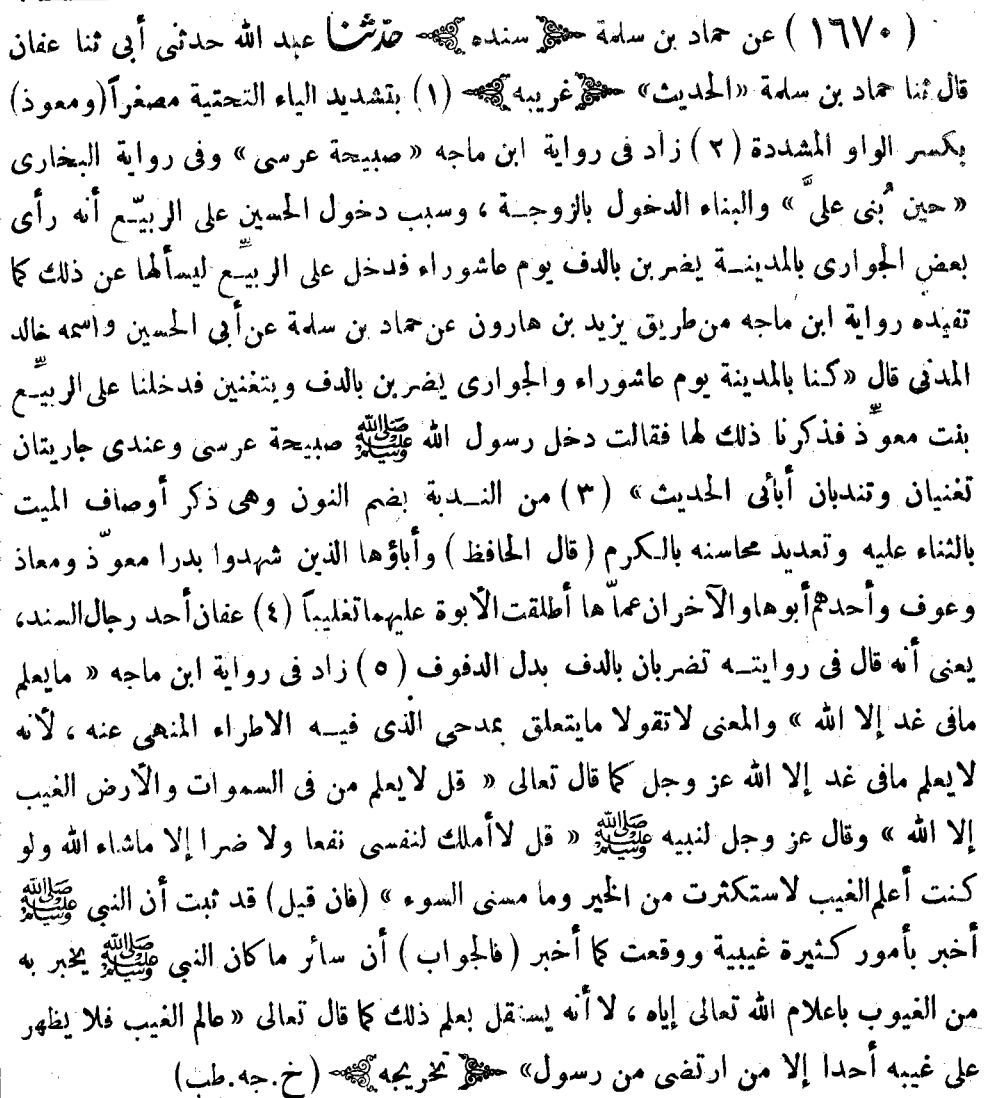 ( ١٦٧٠ ) عن حماد بن سلمة ﴿ سنده ﴾ حدّثنا عبد الله حدثنى أبى ثنا عفان
قال ثنا حماد بن سلمة «الحديث» ﴿ غريبه ﴾ (١) بتشديد الياء التحتية مصغراً (ومعوذ)
بكسر الواو المشددة (٢) زاد فى رواية ابن ماجه « صبيحة عرسى » وفى رواية البخارى
« حين بُنى علىَّ » والبناء الدخول بالزوجة ، وسبب دخول الحسين على الربيّع أنه رأى
بعض الجوارى بالمدينة يضربن بالدف يوم عاشوراء فدخل على الربيّع ليسألها عن ذلك كما
تفيده رواية ابن ماجه من طريق يزيد بن هارون عن حماد بن سلمة عن أبى الحسين واسمه خالد
المدنى قال « كنا بالمدينة يوم عاشوراء والجوارى يضربن بالدف ويتغنين فدخلنا على الربيّع
بنت معوّذ فذكرنا ذلك لها فقالت دخل رسول الله ﷺ صبيحة عرسى وعندى جاريتان
تغنيان وتندبان أبأئى الحديث » (٣) من الندبة بضم النون وهى ذكر أوصاف الميت
بالثناء عليه وتعديد محاسنه بالكرم ( قال الحافظ ) وأباؤها الذين شهدوا بدرا معوّذ ومعاذ
وعوف وأحدهم أبوها والآخران عماّها أطلقت الأبوة عليهما تغليباً (٤) عفان أحد رجال السند،
يعنى أنه قال فى روايته تضربان بالدف بدل الدفوف (٥) زاد فى رواية ابن ماجه « مايعلم
مافى غد إلا الله » والمعنى لاتقولا مايتعلق بمدحى الذى فيه الاطراء المنهى عنه ، لأنه
لايعلم مافى غد إلا الله عز وجل كما قال تعالى « قل لايعلم من فى السموات والأرض الغيب
إلا الله » وقال عز وجل لنبيه ﷺ « قل لاأملك لنفسى نفعا ولا ضرا إلا ماشاء الله ولو
كنت أعلم الغيب لاستكثرت من الخير وما مسنى السوء » (فان قيل) قد ثبت أن النبي ﷺ
أخبر بأمور كثيرة غيبية ووقعت كما أخبر (فالجواب) أن سائر ماكان النبي ﷺ يخبر به
من الغيوب باعلام الله تعالى إياه ، لا أنه يستقل بعلم ذلك كما قال تعالى « عالم الغيب فلا يظهر
على غيبه أحدا إلا من ارتضى من رسول» ﴿ تخريجه ﴾ (خ.جه.طب)